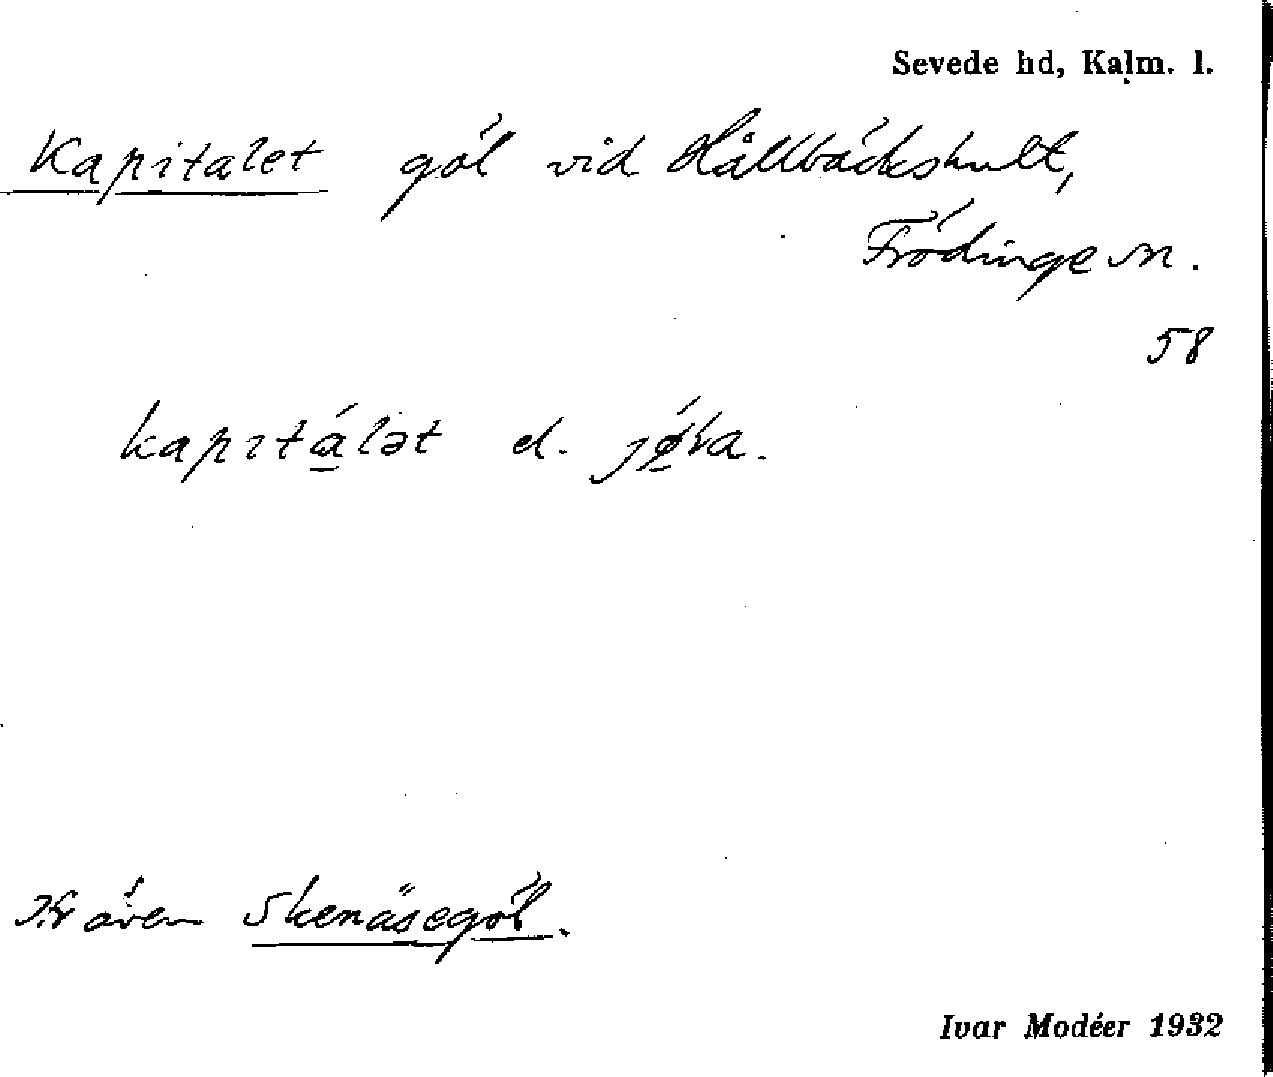 Sevede hd, Kalm. l.
Kapitalet göl vid Hållbäckshult,
Frödinge sn.
58
kapıtálət el. jǿ̱la.
Jfr även Skenäsegöl.
Ivar Modéer 1932